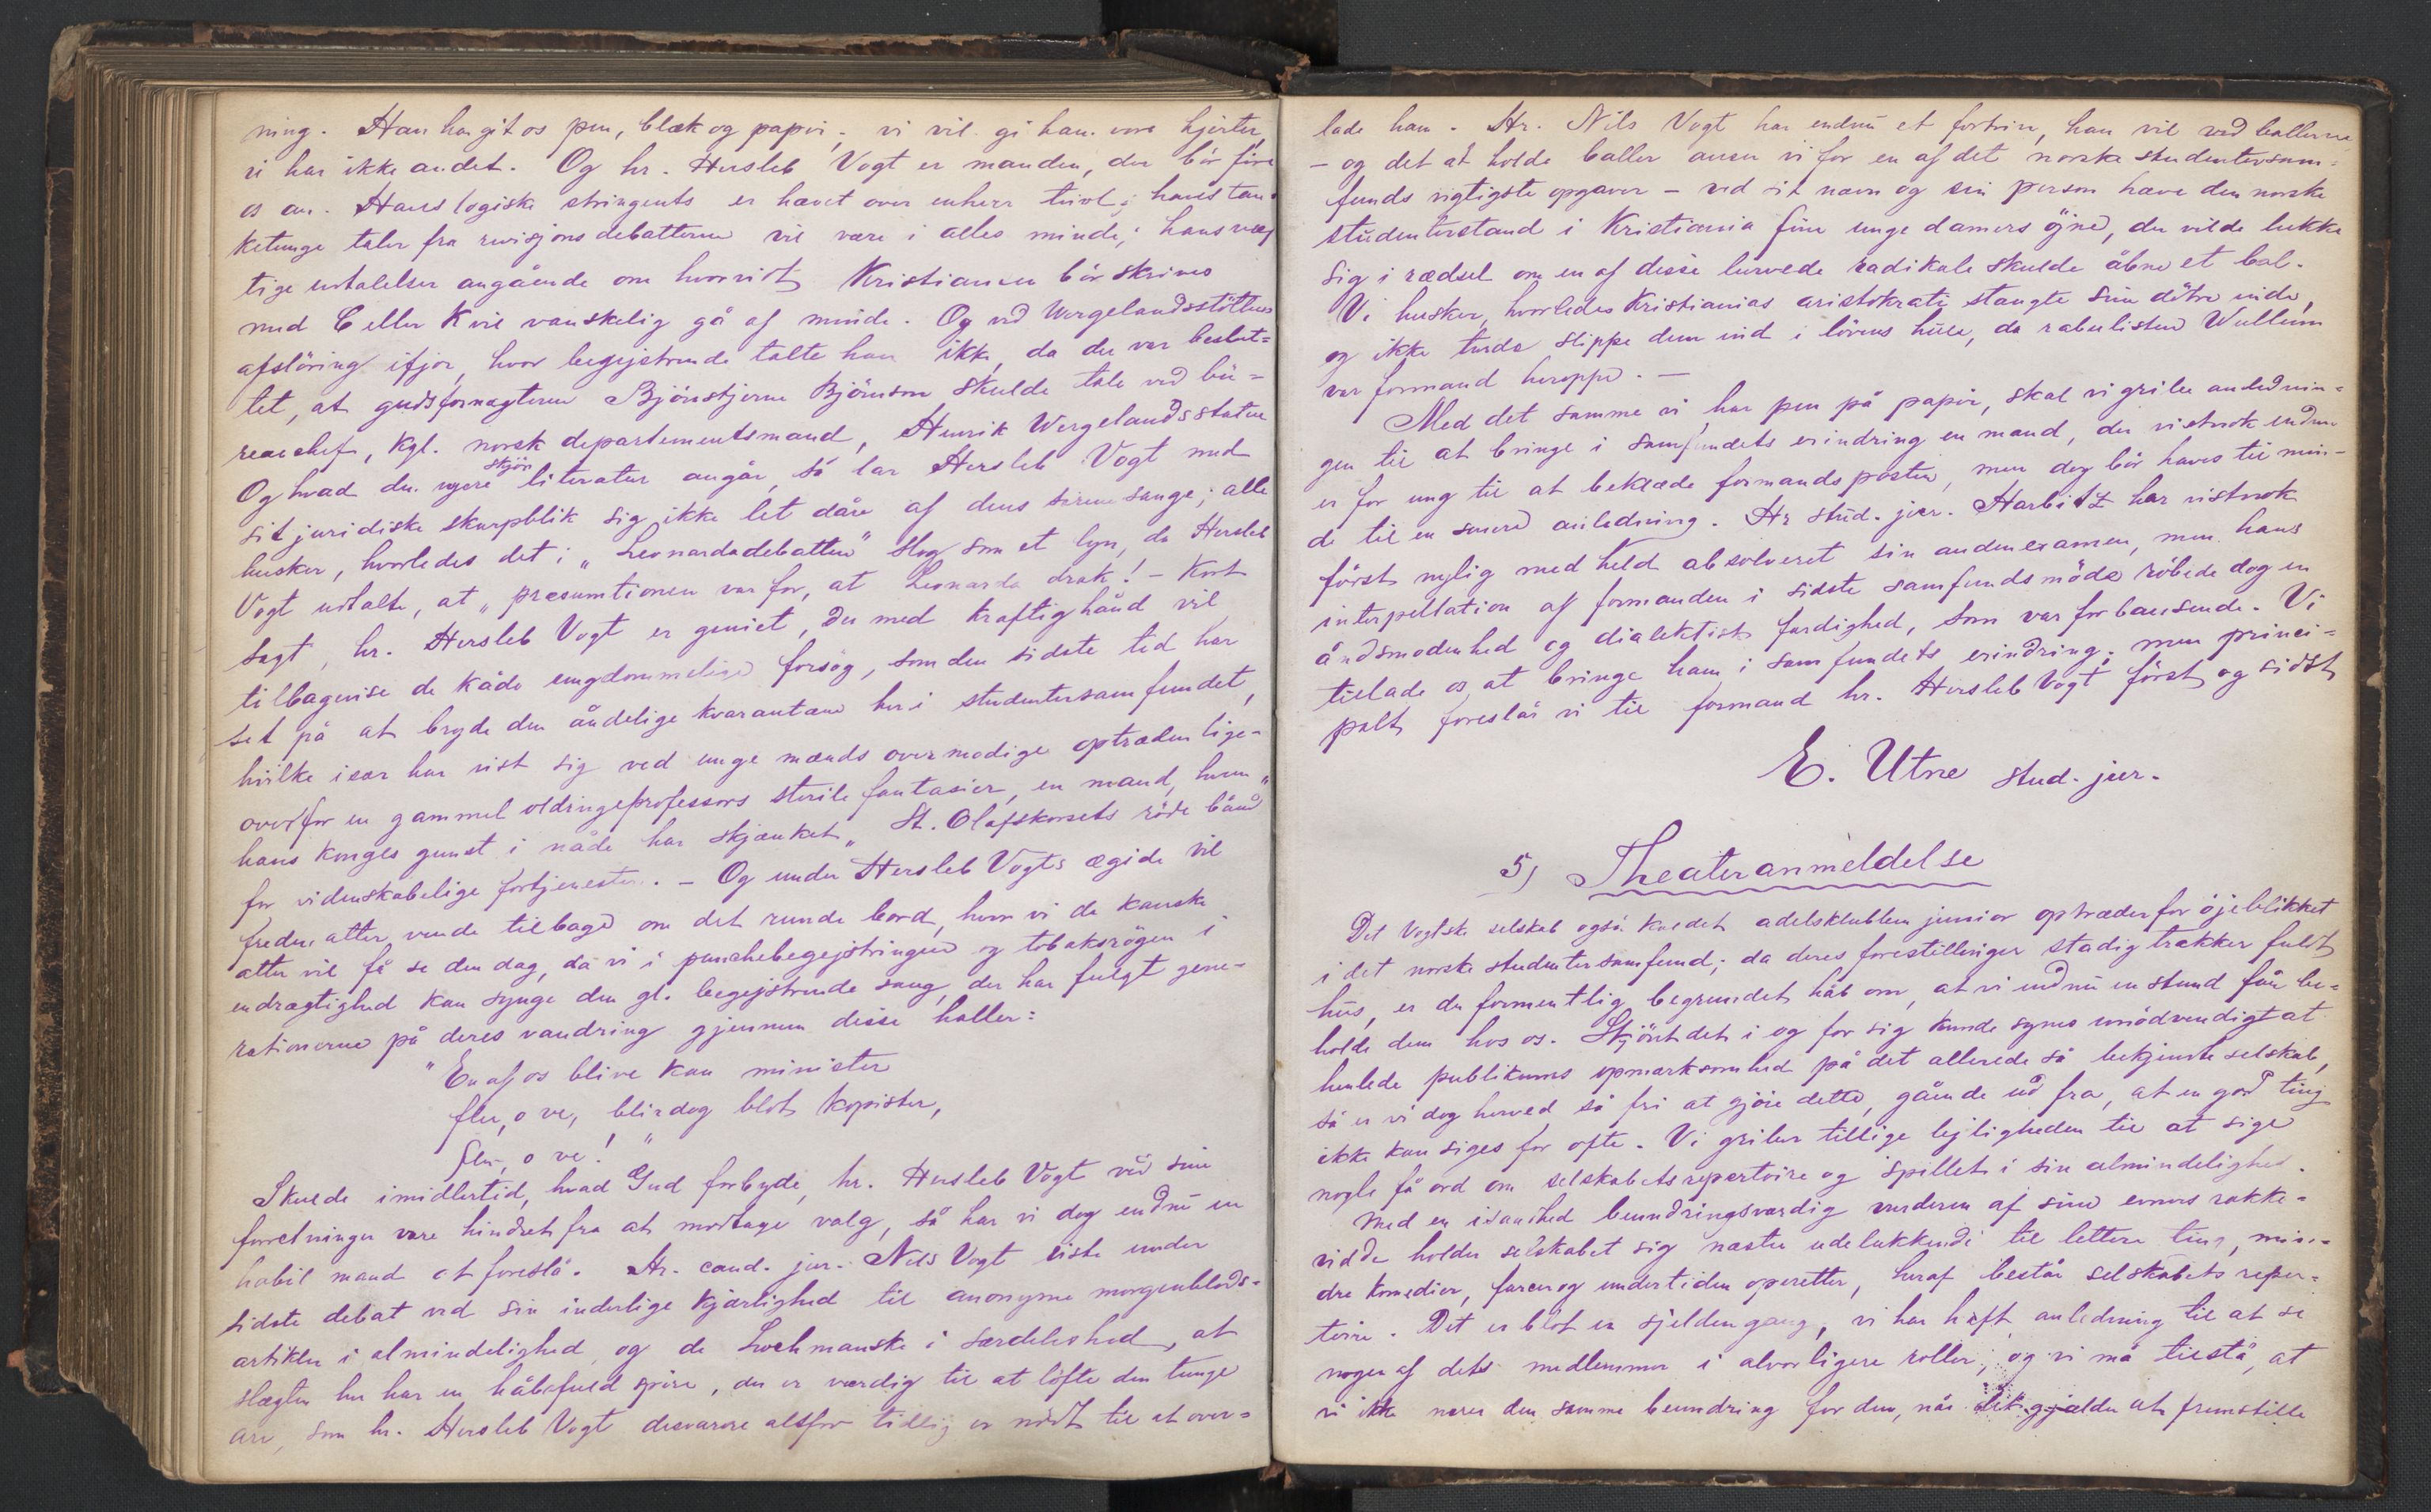 ning. Han har git os pen, blæk og papir; vi vil gi ham vore hjerter,
vi har ikke andet. Og hr. Hersleb Vogt er manden, der bör före
os an. Hans logiske stringents er hævet over enhver tvivl; hans tan-
ketunge taler fra revisjonsdebatterne vil være i alles minde; hans væg
tige udtalelser angående om hvorvidt Kristiania bör skrives
med C eller K vil vanskelig gå af minde. Og ved Wergelandsstöttens
afslöring ifjor, hvor begejstrende talte han ikke, da det var beslut=
tet, at gudsfornægteren Björnstjerne Björnson skulde tale ved bu=
reauchef, kgl. norsk departementsmand, Henrik Wergelands statue
Og hvad den nyere skjön literatur angår, så lar Hersleb Vogt med
sit juridiske skarpblik sig ikke let dåre af dens sirenesange; alle
husker, hvorledes det i „Leonardadebatten" slog som et lyn, da Hersleb
Vogt udtalte, at „præsumtionen var for, at Leonarda drak! – Kort
sagt, hr. Hersleb Vogt er geniet, der med kraftig hånd vil
tilbagevise de kåde ungdommelige forsög, som den sidste tid har
set på at bryde den åndelige kvarantæne her i studentersamfundet,
hvilke især har vist sig ved unge mænds overmodige optræden lige-
overfor en gammel oldingeprofessors sterile fantasier, en mand, hvem
hans konges gunst i nåde har skjænket „St. Olafskorsets röde bånd"
for videnskabelige fortjenester. – Og under Hersleb Vogts ægide vil
freden atter vende tilbage om det runde bord, hvor vi da kanske
atter vil få se den dag, da vi i punschebegejstringen og tobaksrögen i
endrægtighed kan synge den gl. begejstrende sang, der har fulgt gene-
rationerne på deres vandring gjennem disse haller:
"En af os blive kan minister
fler, o ve, blir dog blot kopister,
fler, o ve!"
Skulde imidlertid, hvad Gud forbyde, hr. Hersleb Vogt ved sine
forretninger være hindret fra at modtage valg, så har vi dog endnu en
habil mand at foreslå. Hr. cand. jur. Nils Vogt viste under
sidste debat ved sin inderlige kjærlighed til anonyme morgenblads-
artikler i almindelighed og de Lochmanske i særdeleshed, at
slægten her har en håbefuld spire, der er værdig til at löfte den tunge
arv, som hr. Hersleb Vogt desværre altfor tidlig er nödt til at over=
lade ham. Hr. Nils Vogt har endnu et fortrin, han vil ved ballerne
– og det at holde baller anser vi for en af det norske studentersam-
funds vigtigste opgaver – ved sit navn og sin person hæve den norske
studenterstand i Kristiania fine unge damers öjne, der vilde lukke
sig i rædsel om en af disse lurvede radikale skulde åbne et bal.
Vi husker, hvorledes Kristianias aristokrati stængte sine dötre inde,
og ikke turde slippe dem ind i lövens hule, da rabulisten Wullum
var formand heroppe. –
Med det samme vi har pen på papir, skal vi gribe anlednin=
gen til at bringe i samfundets erindring en mand, der vistnok endnu
er for ung til at beklæde formandsposten, men dog bör haves til min-
de til en senere anledning. Hr stud. jur. Harbitz har vistnok
först nylig med held absolveret sin andenexamen, men hans
interpellation af formanden i sidste samfundsmöde röbede dog en
åndsmodenhed og dialektisk færdighed, som var forbausende. Vi
tillade os at bringe ham i samfundets erindring; men princi=
palt foreslår vi til formand hr. Hersleb Vogt först og sidst
E. Utne stud. jur.
5) Theateranmeldelse
Det Vogtske selskab også kaldet adelsklubben junior optræder for öjeblikket
i det norske studentersamfund; da deres forestillinger stadig trækker fuldt
hus, er der formentlig begrundet håb om, at vi endnu en stund får be=
holde dem hos os. Skjönt det i og for sig kunde synes unödvendigt at
henlede publikums opmærksomhed på det allerede så bekjendte selskab,
så er vi dog herved så fri at gjöre dette, gående ud fra, at en god ting
ikke kan siges for ofte. Vi griber tillige lejligheden til at sige
nogle få ord om selskabets repertoire og spillet i sin almindelighed.
Med en isandhed beundringsværdig vurderen af sine evners række-
vidde holder selskabet sig næsten udelukkende til lettere ting, min-
dre komedier, farcer og undertiden operetter, heraf består selskabets reper=
toire. Det er blot en sjelden gang, vi har haft anledning til at se
nogen af dets medlemmer i alvorligere roller, og vi må tilstå, at
vi ikke nærer den samme beundring for dem, når det gjælder at fremstille